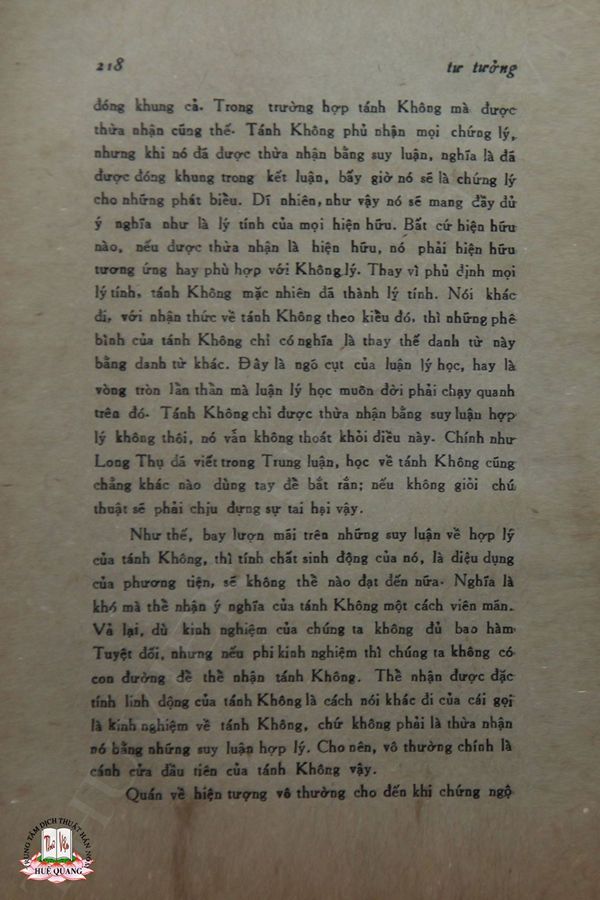 218
tư tưởng
đóng khung cả. Trong trường hợp tánh Không mà được
thừa nhận cũng thế. Tánh Không phủ nhận mọi chứng lý,
nhưng khi nó đã được thừa nhận bằng suy luận, nghĩa là đã
được đóng khung trong kết luận, bấy giờ nó sẽ là chứng lý
cho những phát biểu. Dĩ nhiên, như vậy nó sẽ mang đầy đủ
ý nghĩa như là lý tính của mọi hiện hữu. Bất cứ hiện hữu
nào, nếu được thừa nhận là hiện hữu, nó phải hiện hữu
tương ứng hay phù hợp với Không lý. Thay vì phủ định mọi
lý tính, tánh Không mặc nhiên đã thành lý tính. Nói khác
đi, với nhận thức về tánh Không theo kiểu đó, thì những phê
bình của tánh Không chỉ có nghĩa là thay thế danh từ này
bằng danh từ khác. Đây là ngõ cụt của luận lý học, hay là
vòng tròn lẩn thẩn mà luận lý học muôn đời phải chạy quanh
trên đó. Tánh Không chỉ được thừa nhận bằng suy luận hợp
lý không thôi, nó vẫn không thoát khỏi điều này. Chính như
Long Thụ đã viết trong Trung luận, học về tánh Không cũng
chẳng khác nào dùng tay để bắt rắn; nếu không giỏi chú
thuật sẽ phải chịu đựng sự tai hại vậy.
Như thế, bay lượn mãi trên những suy luận về hợp lý
của tánh Không, thì tính chất sinh động của nó, là diệu dụng
của phương tiện, sẽ không thể nào đạt đến nữa. Nghĩa là
khó mà thể nhận ý nghĩa của tánh Không một cách viên mãn.
Vả lại, dù kinh nghiệm của chúng ta không đủ bao hàm
Tuyệt đối, nhưng nếu phi kinh nghiệm thì chúng ta không có
con đường để thể nhận tánh Không. Thể nhận được đặc
tính linh động của tánh Không là cách nói khác đi của cái gọi
là kinh nghiệm về tánh Không, chứ không phải là thừa nhận
nó bằng những suy luận hợp lý. Cho nên, vô thường chính là
cánh cửa đầu tiên của tánh Không vậy.
Quán về hiện tượng vô thường cho đến khi chứng ngộ
TRUNG TÂM DỊCH THUẬT HÁN NÔM
HUỆ QUANG